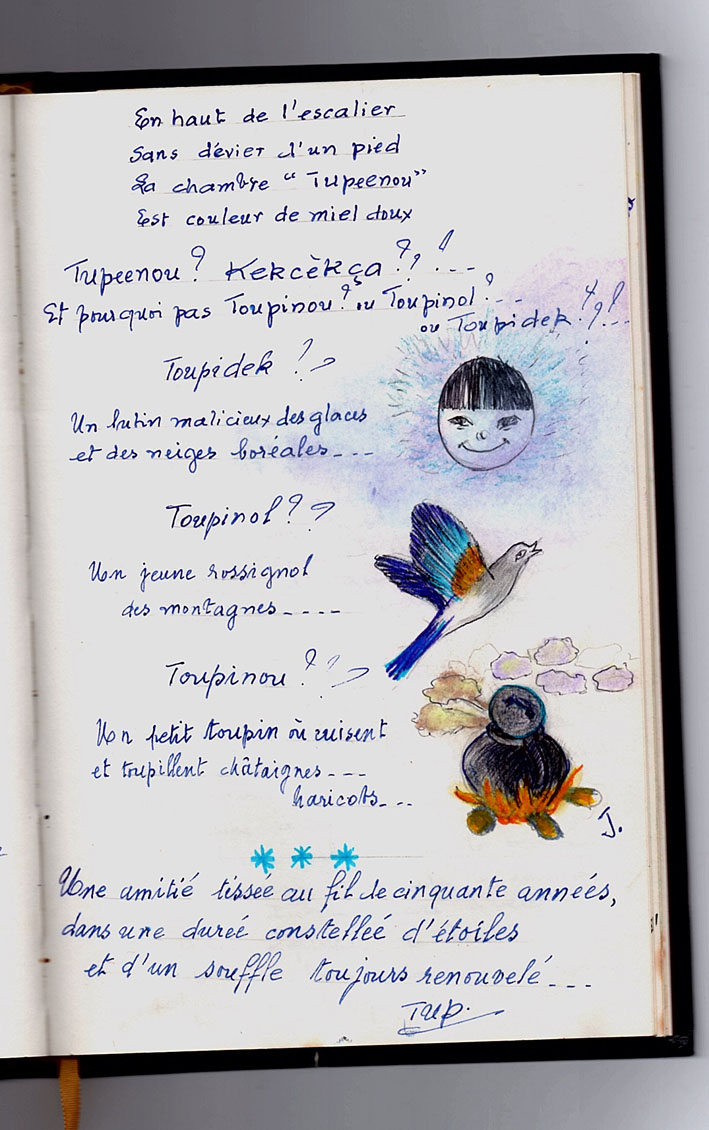 En haut de l'escalier
Sans dévier d'un pied
La chambre "Tupeenou"
Est couleur de miel doux
Tupeenou ? Kekcèkça ? ? ! ...
Et pourquoi pas Toupinou ? ou Toupinol ? ...
ou Toupidek ? ? ! ...
Toupidek ! ?
Un lutin malicieux des glaces
et des neiges boréales ...
Toupinol ? ?
Un jeune rossignol
des montagnes ....
Toupinou ? ? ?
Un petit toupin où cuisent
et toupillent châtaignes ...
haricots ...
J.
* * *
Une amitié tissée au fil de cinquante années,
dans une dureé constelleé d'étoiles
et d'un souffle toujours renouvelé ...
Tup.